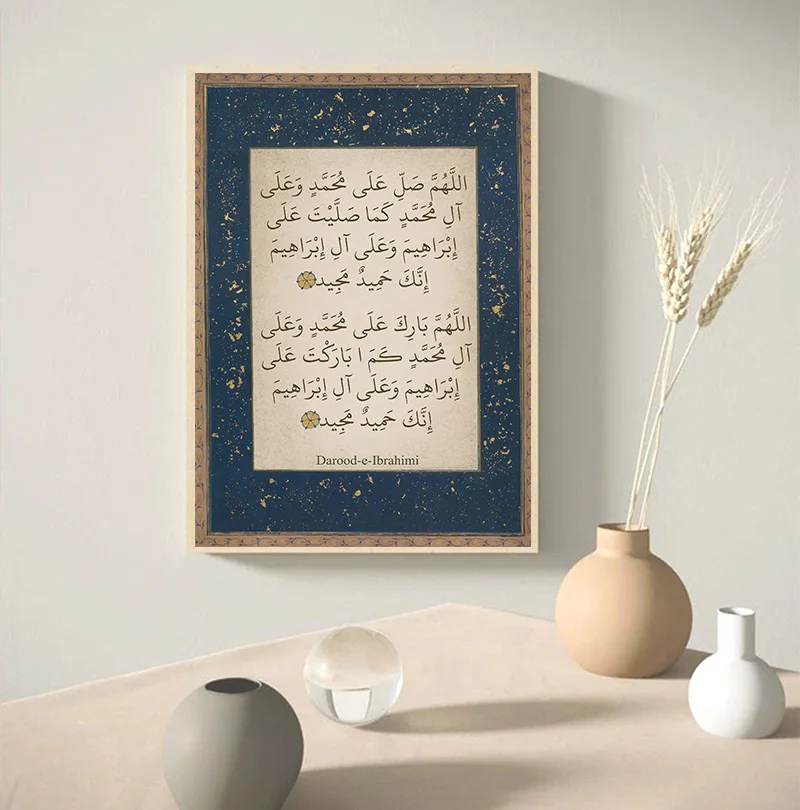 اللَّهُمَّ صَلِّ عَلَى مُحَمَّدٍ وَعَلَى
آلِ مُحَمَّدٍ كَمَا صَلَّيْتَ عَلَى
إِبْرَاهِيمَ وَعَلَى آلِ إِبْرَاهِيمَ
إِنَّكَ حَمِيدٌ مَجِيد
اللَّهُمَّ بَارِكَ عَلَى مُحَمَّدٍ وَعَلَى
آلِ مُحَمَّدٍ كَمَ ا بَارَكْتَ عَلَى
إِبْرَاهِيمَ وَعَلَى آلِ إِبْرَاهِيمَ
إِنَّكَ حَمِيدٌ مَجِيد
Darood-e-Ibrahimi